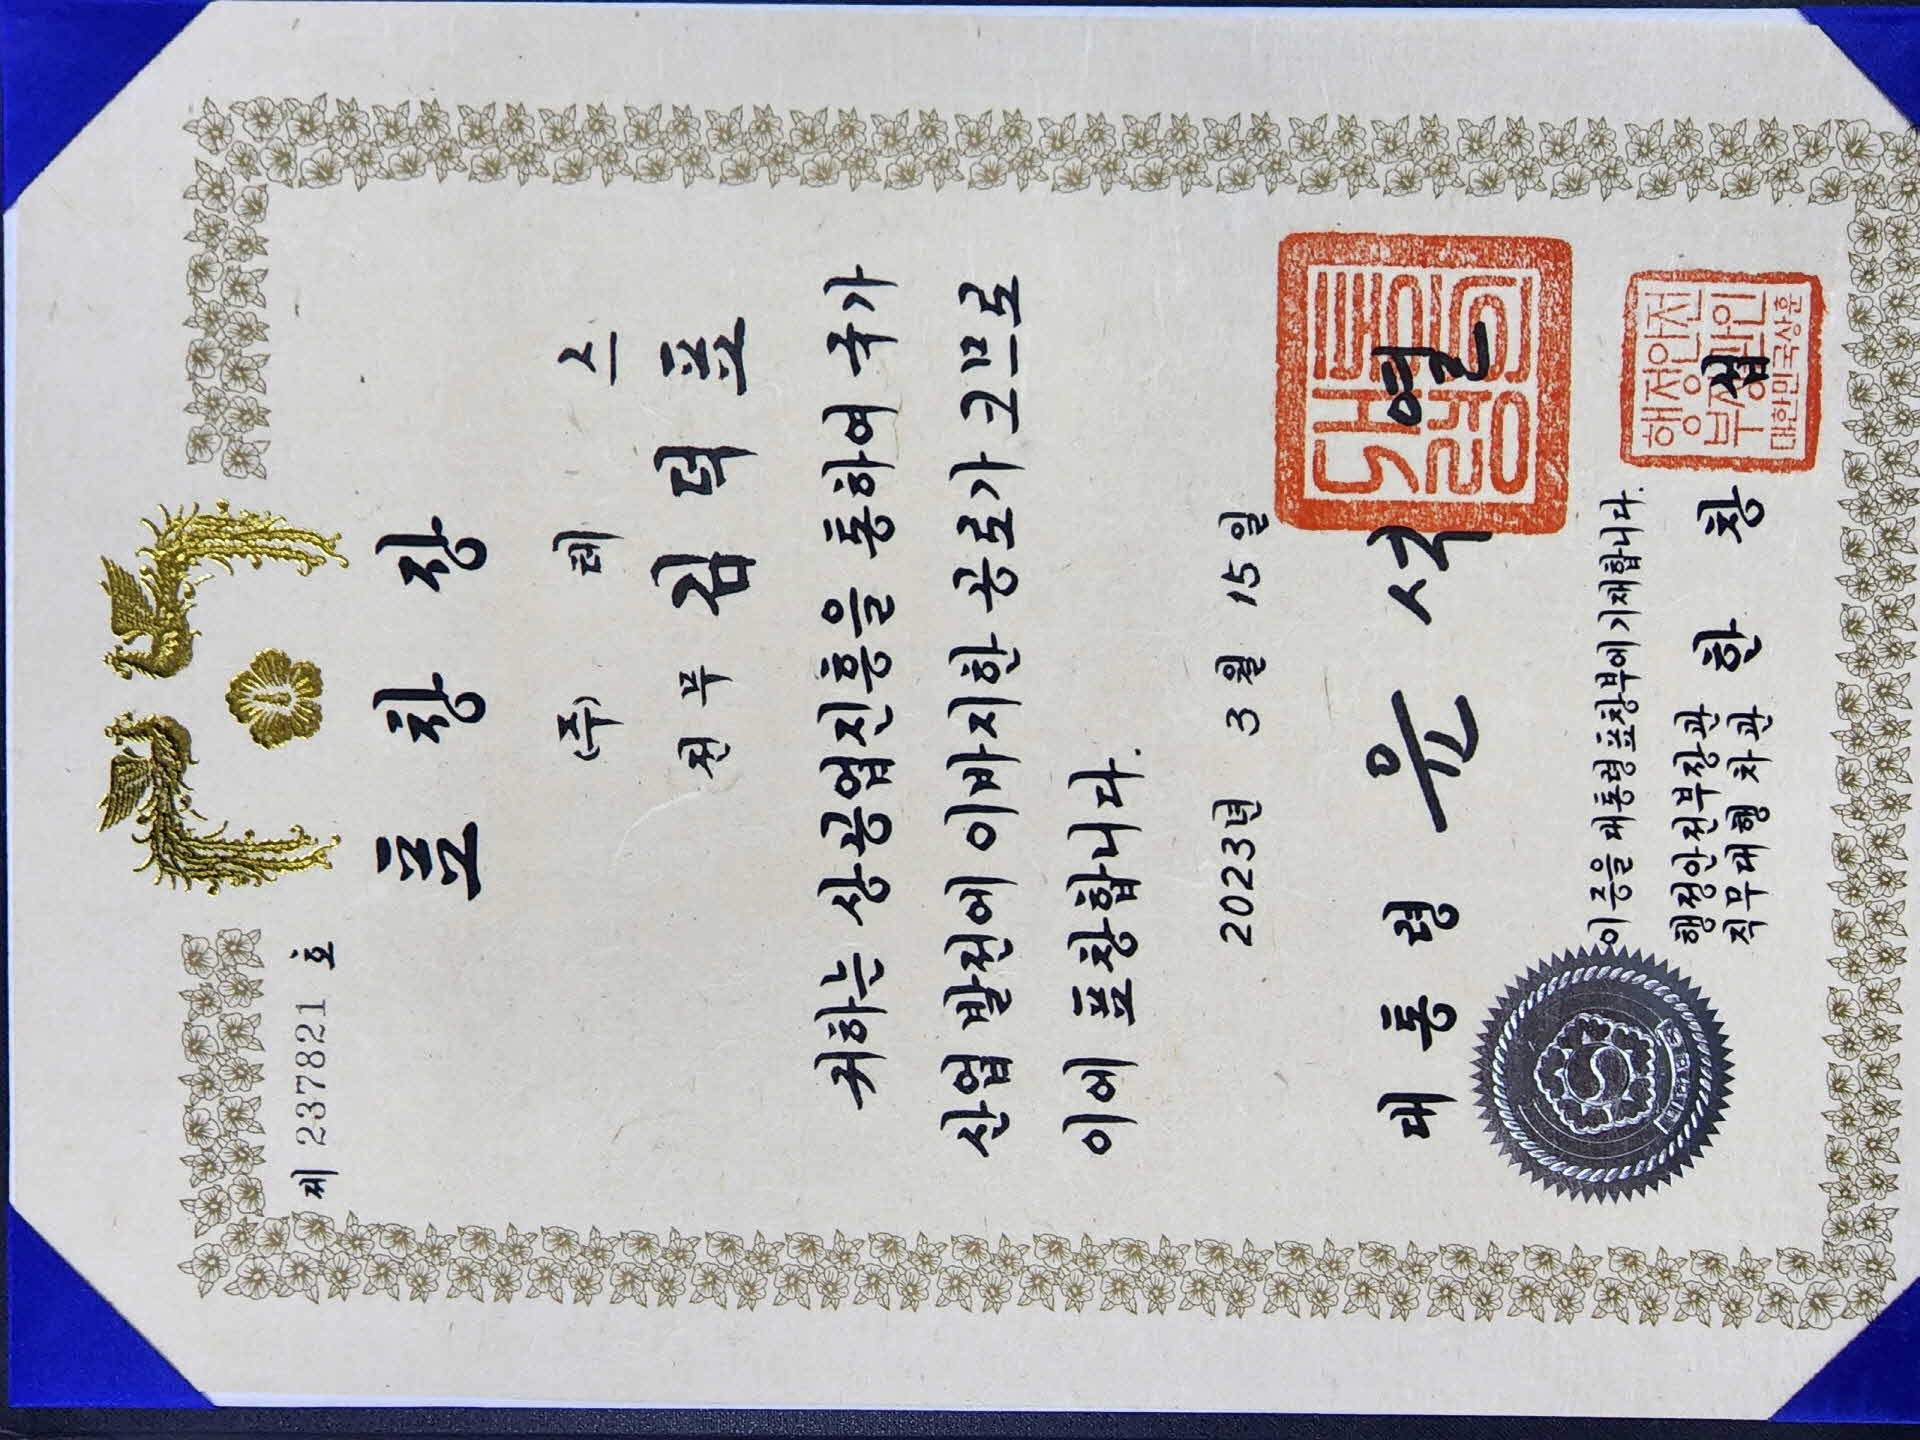 제 237821 호
표 창 장
(주) 태 스
전무 김덕표
귀하는 상공업진흥을 통하여 국가
산업발전에 이바지한 공로가 크므로
이에 표창합니다.
2023년 3월 15일
대통령 윤석열
이 증을 대통령표창부에 기재합니다.
행정안전부장관
직무대행 차관 한창섭
행정안전
부장관인
대한민국상훈